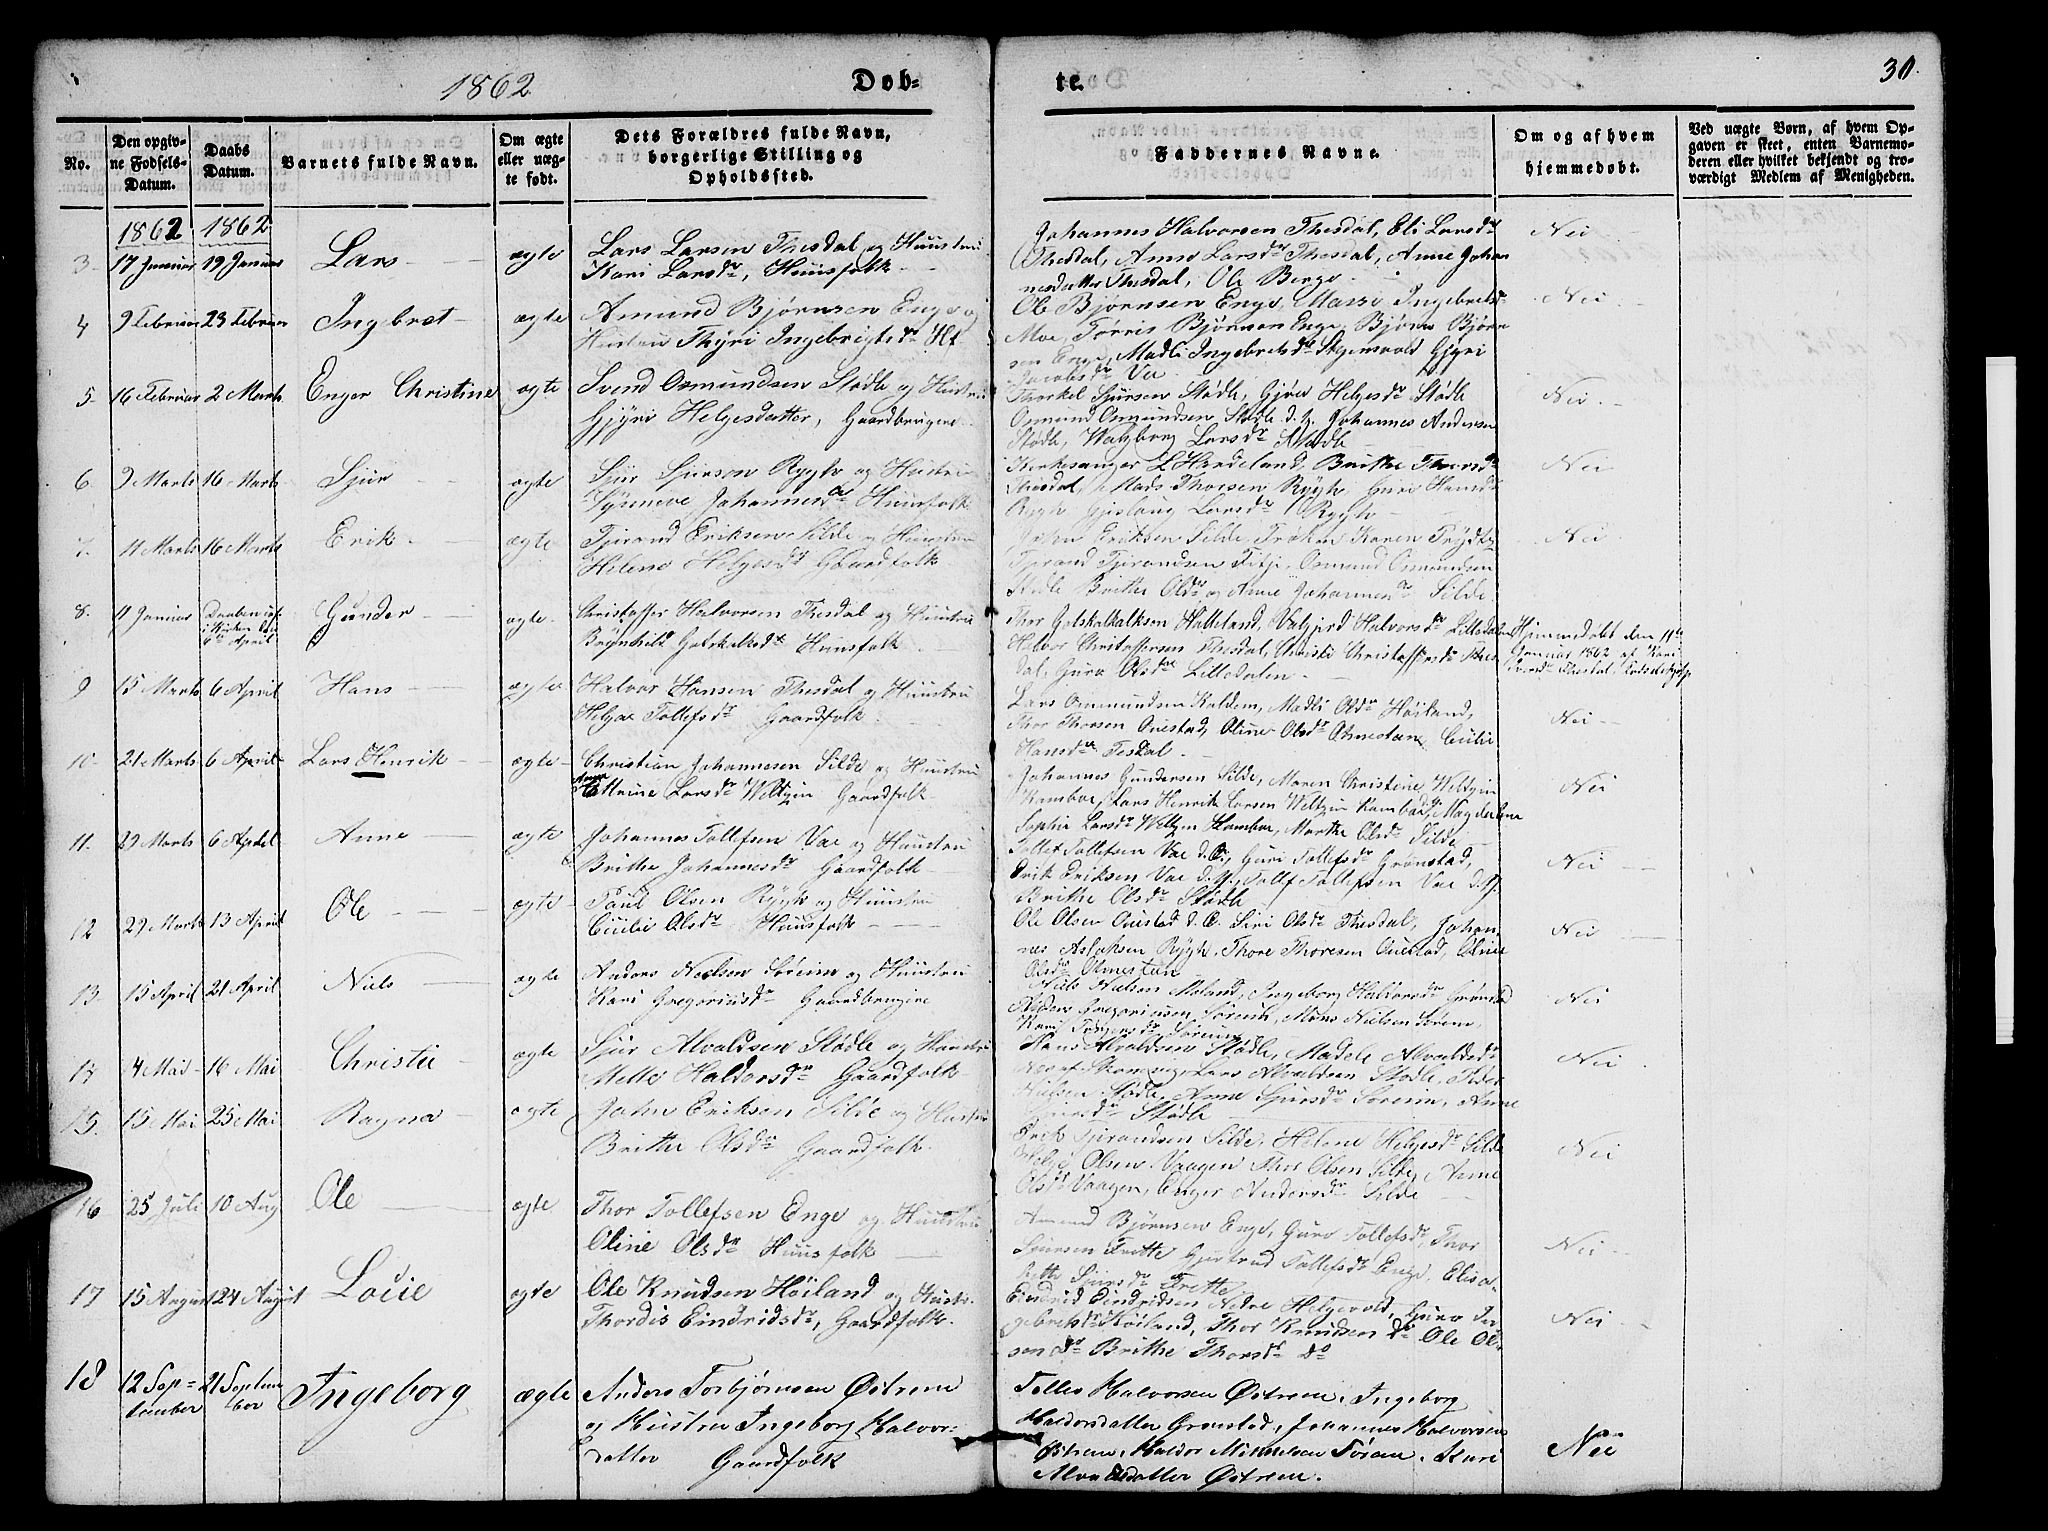 1862 Døb-
te. 30.
No.
Den opgiv-
ne Fødsels-
Datum.
Daabs
Datum.
Barnets fulde Navn.
Om ægte
eller uæg-
te født.
Dets Forældres fulde Navn,
borgerlige Stilling og
Opholdssted.
Faddernes Navne.
Om og af hvem
hjemmedøbt.
Ved uægte Børn, af hvem Op-
gaven er skeet, enten Barnemo-
deren eller hvilket bekjendt og tro-
værdigt Medlem af Menigheden.
1862 1862
3 17 Januar 19 Januar Lars ægte
Lars Larsen Thesdal og Huustru
Kari Larsdr, Huusfolk
Johannes Halvorsen Thesdal, Eli Larsdr
Thesdal, Anne Larsdr Thesdal, Anne Johan
nesdatter Thesdal, Ole Berge
Nei
4 9 Februar 23 Februar Ingebret ægte
Amund Bjørnsen Enge og
Hustru Thyri Ingebrigtsdr
Ole Bjørnsen Enge, Ingebretsdr
Moe, Tørris Bjørnsen Enge, Bjørn Bjørn
sen Enge, Madli Ingebretsdr Gjyri
Jacobsdr Va
Nei
5 16 Februar 2 Marts Enger Christine ægte
Svend Osmundsen Stødle og Hustru
Gjyri Helgesdatter, Gaardbrugere
Thorkel Sjursen Stødle, Gjøre Helgesdr Stødle
Osmund Osmundsen Stødle d.y. Johannes Andersen
Stødle, Walgborg Larsdr Stødle
Nei
6 9 Marts 16 Marts Sjur ægte
Sjur Sjurson Rygh og Hustru
Synneve Johannesdr Huusfolk
Kirkesanger L Hardeland, Brithe Thorsdr
Thesdal, Mads Thorsen Rygh, Guri Hansdr
Rygh Gjislaug Larsdr Rygh
Nei
7. 11 Marts 16 Marts Erik ægte
Tjerand Eriksen Silde og Huustru
Helene Helgesdr Gaardfolk
Eriksen Silde, Frøken Karen
Tjerand Tjerandsen Fitje, Osmund Osmundsen
Stødle Brithe Olsdr og Anne Johannesdr Silde
Nei
8. 11 Januar Daaben
i Kirken
6te April
Gunder ægte
Christoffer Halvorsen Thesdal og Huustru
Brynhild Gotskalksdr Huusfolk
Thor Gotskalkalksen Hatteland, Valgjerd Halvorsdr Lilledalen
Halvor Christoffersen Thesdal, Christi Christoffersdr Thes
dal, Guro Olsdr Lilledalen
Hjemmedøbt den 11te
Januar 1862 af Kari
Thesdal,
9 15 Marts 6 April Hans ægte
Halvor Hansen Thesdal og Huustru
Helga Tollefsdr Gaardfolk
Lars Osmundsen Kaldem, Madli Olsdr Høiland,
Thor Thorsen Ovestad, Oline Olsdr Cicilie
Hansdr Tesdal
Nei
10 21 Marts 6 April Lars Henrik ægte
Christian Johannesen Silde og Huustru
Anne
Cathrine Larsdr Weltzin Gaardfolk
Johannes Gundersen Silde, Maren Christine Weltzin
Kambe, Lars Henrik Larsen Weltzin Kambe d.y. Magdelene
Sophie Larsdr Weltzin Kambe, Marthe Olsdr Silde
Nei
11. 29 Marts 6 April Anne ægte
Johannes Tollefsen Vae og Huustru
Brithe Johannesdr Gaardfolk
Tollef Tollefsen Vae d.E., Guri Tollefsdr Grønstad,
Erik Eriksen Vae d.y., Tollef Tollefsen Vae d.y.
Brithe Olsdr Stødle
Nei
12 29 Marts 13 April Ole ægte
Paul Olsen Rygh og Huustru
Cicilie Olsdr Huusfolk
Ole Olsen Ovestad d.E. Siri Olsdr Thesdal, Johan-
nes Aslaksen Rygh, Thore Thoresen Ovestad, Oline
Olsdr
Nei
13. 15 April 21 April Niels ægte
Anders Nielsen Søreim og Huustru
Kari Gregoriusdr Gaardbrugere
Niels Nielsen Moland, Ingeborg Halvorsdr Grønstad
Anders Gregoriusen Søreim, Mons Nielsen Søreim
Kari Søreim
Nei
14 4 Mai 16 Mai Christie ægte
Sjur Alvaldsen Stødle og Huustru
Mette Haldorsdr Gaardfolk
Hans Alvaldsen Stødle, Madele Alvaldsdr
Lars Alvaldsen Stødle, Peder
Nielsen Stødle, Anne Sjursdr Søreim, Anne
Sjursdr Stødle
Nei
15. 15 Mai 25 Mai Ragna ægte
John Eriksen Silde og Hustru
Brithe Olsdr Gaardfolk
Erik Tjerandsen Silde, Helene Helgesdr Silde
Helge Olsen Vaagen, Thor Olsen Silde, Anne
Olsdr Vaagen, Enger Andersdr Silde
Nei
16 25 Juli 10 Aug Ole ægte
Thor Tollefsen Enge og Huustru
Oline Olsdr Huusfolk
Amund Bjørnsen Enge, Guro Tollefsdr, Thor
Sjursen Frette Gjertrud Tollefsdr Enge, Elisa-
bethe Sjursdr Frette
Nei
17 15 August 24 August Lovie ægte
Ole Knudsen Høiland og Hustr.
Thordis Eindridsdr, Gaardfolk
Eindrid Eindridsen Nedre Helgevold, Guro In-
gebretsdr Høiland, Thor Knudsen Do Ole Ol-
sen Do Brithe Thorsdr Do
Nei
18 12 Sep-
tember
21 Septem
ber
Ingeborg ægte
Anders Torbjørnsen Østreim
og Hustru Ingeborg Halvors-
datter Gaardfolk
Tollef Halvorsen Østreim, Ingeborg
Haldorsdatter Grønstad, Johannes Halvorsen
Østreim, Haldor Mikkelsen Søreim, Kari
Alvaldsdatter Østreim.
Nei